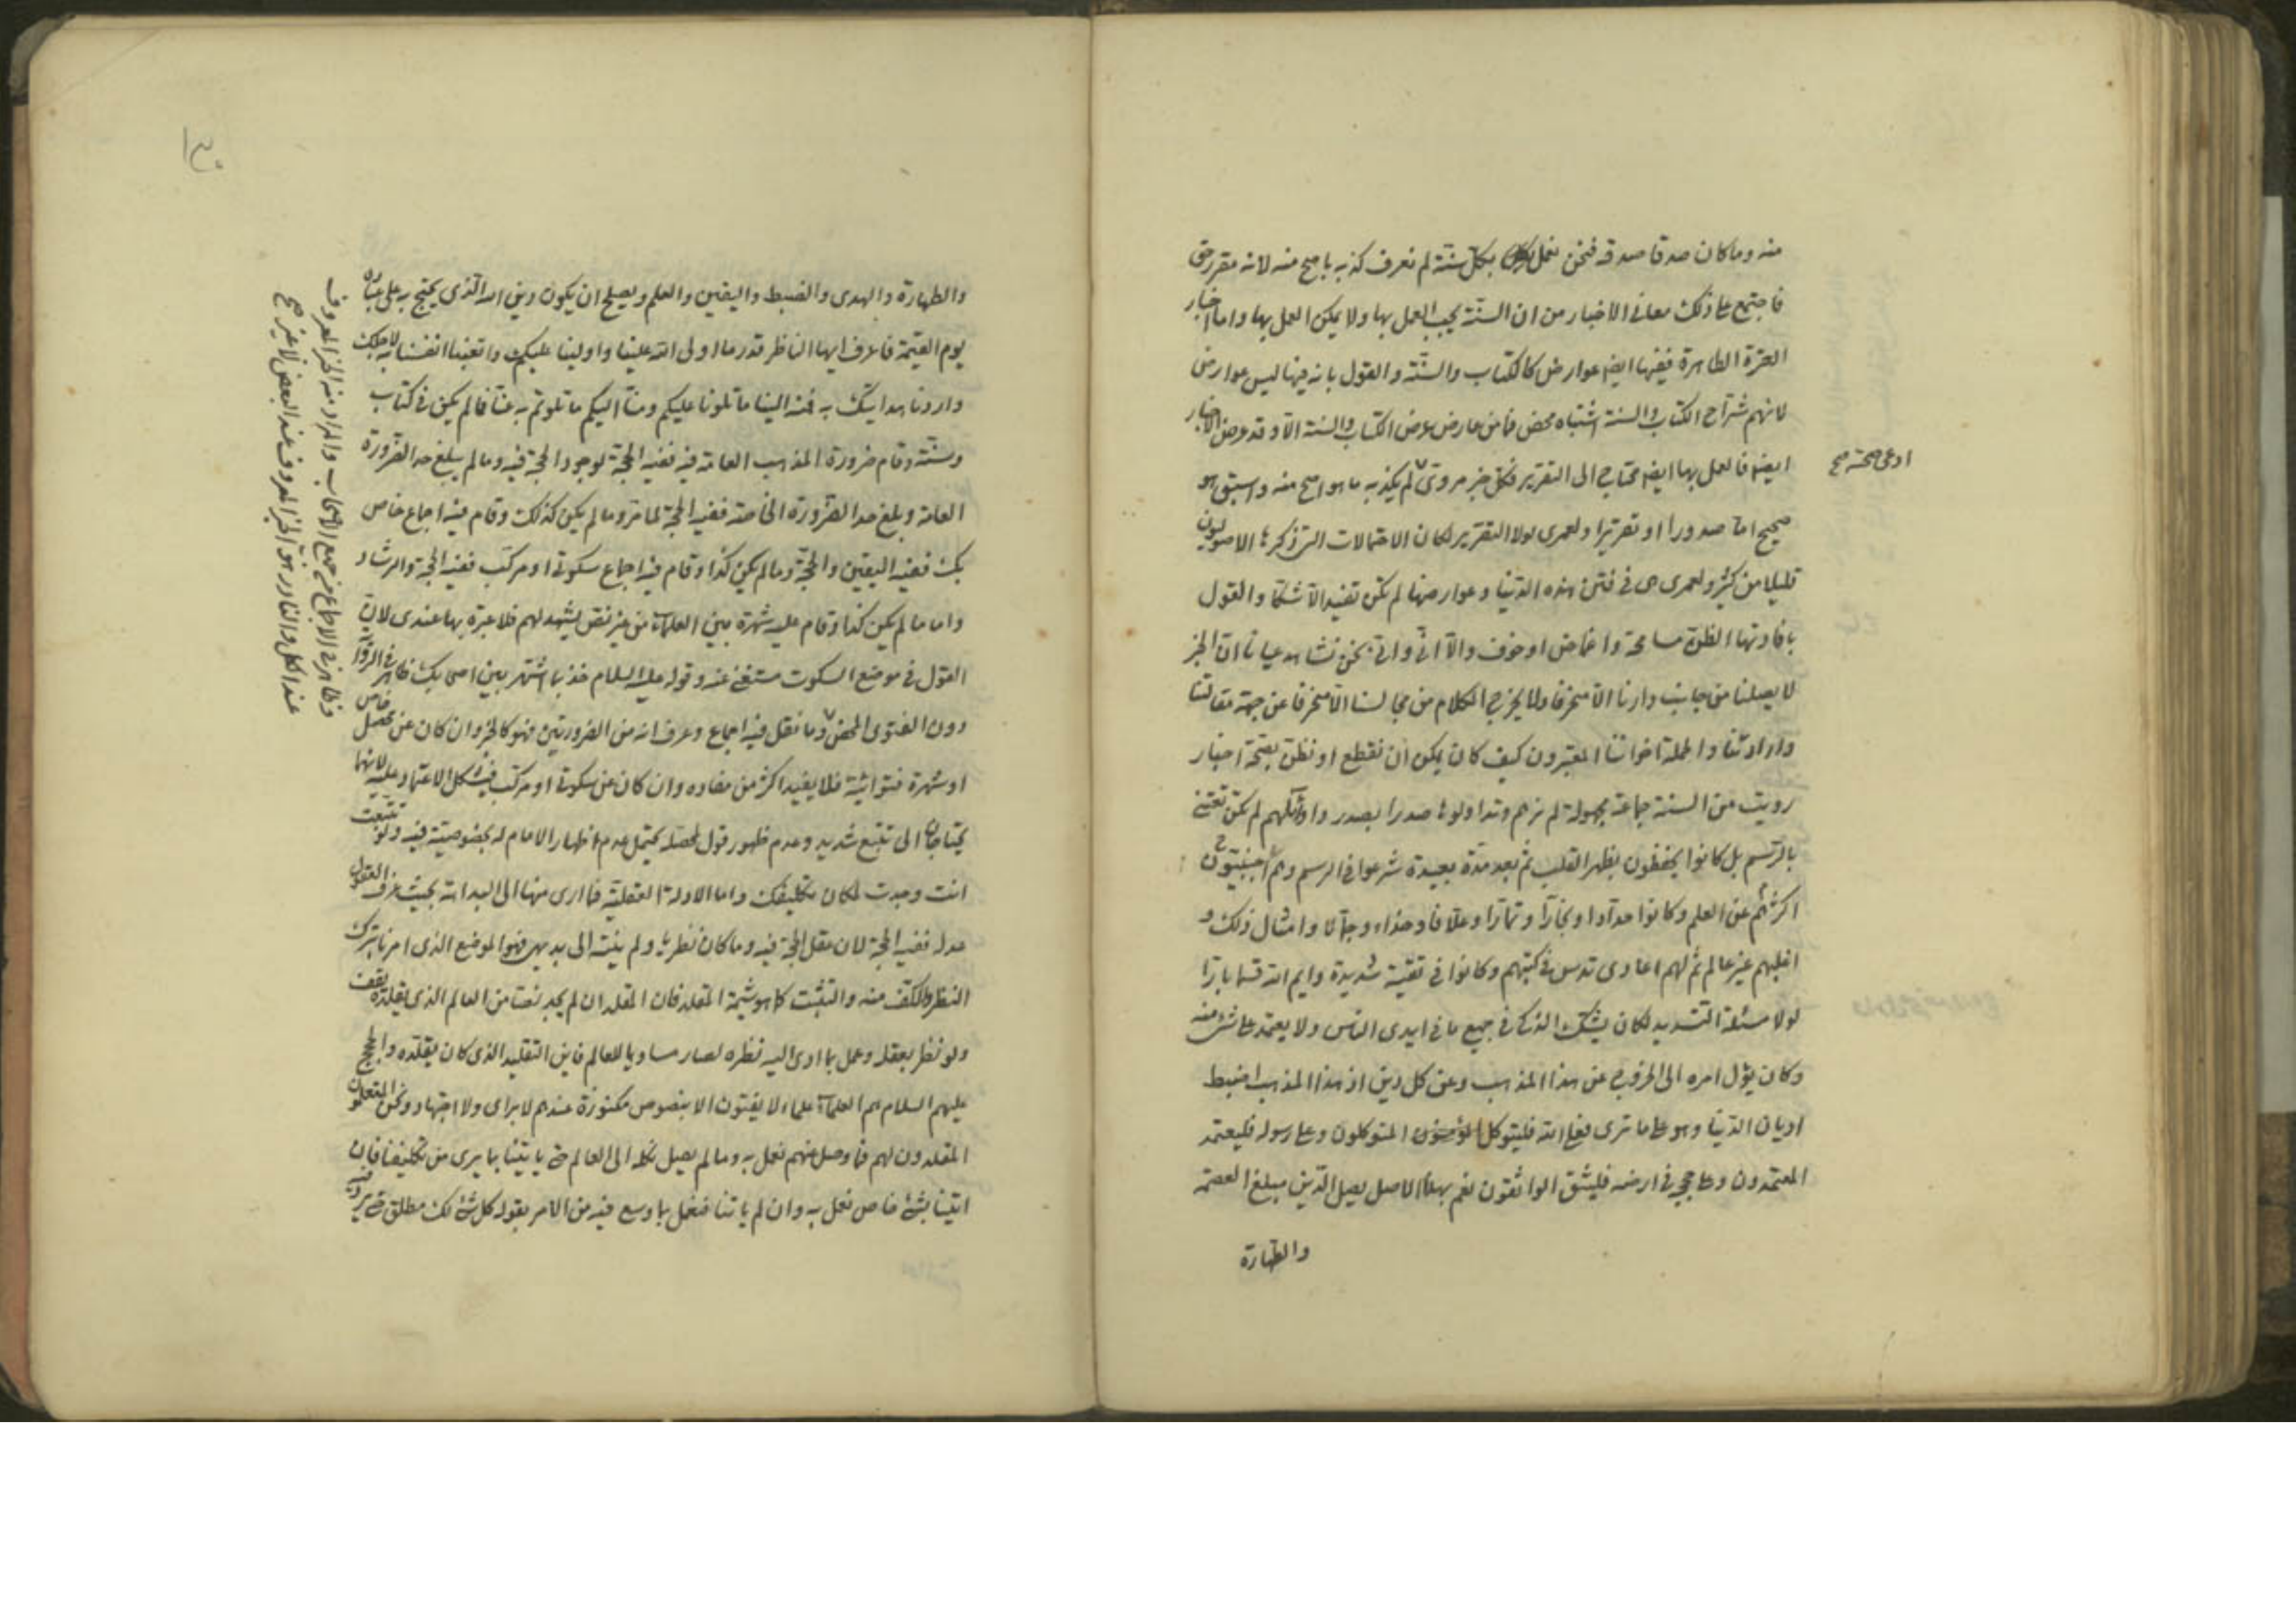 منه وما كان صدقا صدقه فنحن نعمل بكل سنة لم نعرف كذبه باصح منه لانه مقرر حق
فاجتمع على ذلك معاني الاخبار من ان السنة يجب العمل بها ولا يمكن العمل بها واما اخبار
العترة الطاهرة ففيها ايضا عوارض كالكتاب والسنة والقول بانه فيها ليس عوارض
لانهم شراح الكتاب والسنة اشتباه محض فما من عارض عرض الكتاب والسنة الا وقد عرض الاخبار
ايضا فالعمل بها ايضا محتاج الى التقرير فكل خبر مروي لم يكذبه ما هو اصح منه واسبق هو
ادعى صحته صح
صحيح اما صدورا او تقريرا ولعمري لولا التقرير لكان الاحتمالات التي ذكرها الاصوليون
قليلا من كثير ولعمري هي في فتن هذه الدنيا وعوارضها لم تكن تفيد الا شكا والقول
بافادتها الظن مسامحة واغماض او خوف والا اني واني نحن نشاهد عيانا ان الخبر
لا يصلنا من جانب دارنا الا منحرفا ولا يخرج الكلام من مجالسنا الا منحرفا عن جهة مقالتنا
وارادتنا والحملة اخواننا المعتبرون كيف كان يمكن ان نقطع او نظن بصحة اخبار
رويت من السنة جماعة مجهولة لم نرهم وتداولوها صدرا بصدر واوائلهم لم تكن تعتني
بالرسم بل كانوا يحفظون بظهر القلب ثم بعد مدة بعيدة شرعوا في الرسم وهم اجنبيون
اكثرهم عن العلم وكانوا حدادا ونجارا وتمارا وعلافا وحذاء وجمالا وامثال ذلك و
اغلبهم غير عالم ثم لهم اعادي تدس في كتبهم وكانوا في تقية شديدة وايم الله قسما بارا
لولا مسئلة التسديد لكان يشك الذكي في جميع ما في ايدي الناس ولا يعتمد على شئ منه
وكان يؤل امره الى الخروج عن هذا المذهب وعن كل دين اذ هذا المذهب اضبط
اديان الدنيا وهو على ما ترى فعلى الله فليتوكل المتوكلون وعلى رسوله فليعتمد
المعتمدون وعلى حججه في ارضه فليثق الواثقون نعم بهذا الاصل يصل الدين مبلغ العصمة
والطهارة
١٣٠
والطهارة والهدى والضبط واليقين والعلم ويصلح ان يكون دين الله الذي يحتج به على عباده
يوم القيمة فاعرف ايها الناظر قدر ما اولى الله علينا واولينا عليك واتعبنا انفسنا به لاجلك
واردنا هدايتك به فمنه الينا ما تلونا عليكم ومنا اليكم ما تلوتم به عنا فما لم يكن في كتاب
وسنة وقام ضرورة المذهب العامة فيه ففيه الحجة لوجود الحجة فيه وما لم يبلغ حد الضرورة
العامة وبلغ حد الضرورة الخاصة ففيه الحجة لما مر وما لم يكن كذلك وقام فيه اجماع خاص
بك ففيه اليقين والحجة وما لم يكن كذا وقام فيه اجماع سكوتي او مركب ففيه الحجة والرشاد
واما ما لم يكن كذا وقام عليه شهرة بين العلماء من غير نص يشهد لهم فلا عبرة بها عندي لان
القول في موضع السكوت مستغنى عنه وقوله عليه السلام خذ بما اشتهر بين اصحابك ظاهر في الرواية
دون الفتوى المحض وما نقل فيه اجماع وعرف انه من الضروريتين فهو كالخبر وان كان عن محصل خاص
او شهرة فتوائية فلا يفيد اكثر من مفاده وان كان عن سكوتي او مركب فيشكل الاعتماد عليه لانهما
يحتاجان الى تتبع شديد وعدم ظهور قول لمحصله يحتمل عدم اظهار الامام له بخصوصيته فيه ولو تتبعت
انت وجدت لكان تكليفك واما الادلة العقلية فما ارى منها الى البداهة بحيث عرف العقول
عدله ففيه الحجة لان عقل الحجة فيه وما كان نظريا ولم ينته الى بديهي فهو الموضع الذي امرنا بترك
النظر والكف عنه والتثبت كما هو شيمة المقلد فان المقلد ان لم يجد نصا من العالم الذي يقلده يقف
ولو نظر بعقله وعمل بما ادى اليه نظره لصار مساويا للعالم فاين التقليد الذي كان يقلده والحجج
عليهم السلام هم العلماء علماء لا يفتون الا بنصوص مكنوزة عندهم لا براي ولا اجتهاد ونحن المتعلمون
المقلدون لهم فما وصل منهم نعمل به وما لم يصل نكله الى العالم حتى ياتينا بما يرى من تكليفنا فان
اتينا بشئ خاص نعمل به وان لم ياتنا فنعمل بما وسع فيه من الامر بقوله كل شئ لك مطلق حتى يرد فيه
وظاهر في الاجماع من جميع الاصحاب والمراد منه الخبر المعروف
عند الكل والنادر هو الخبر المعروف عند البعض لا غير صح